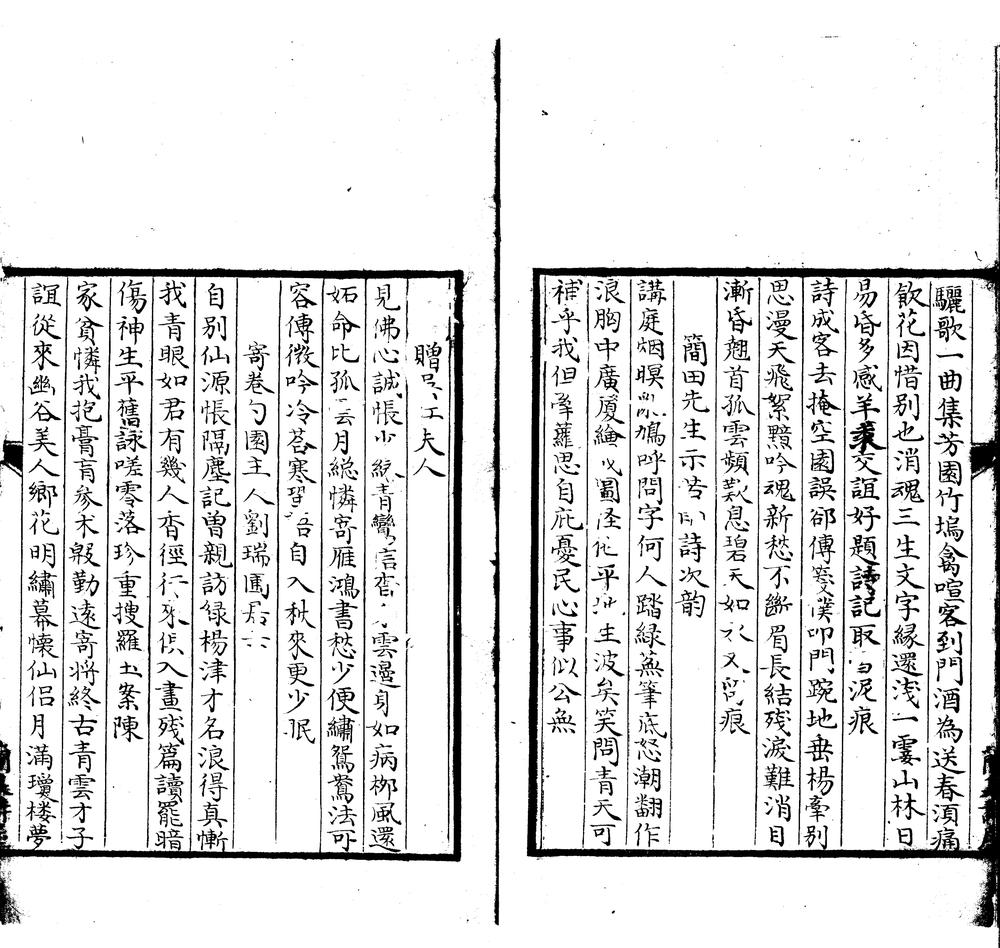 驪歌一曲集芳園竹塢禽喧客到門酒為送春須痛
飲花因惜别也消魂三生文字縁還淺一霎山林日
易昏多感羊裘交誼好題詩記取雪泥痕
詩成客去掩空園誤卻傳箋僕叩門踠地垂楊牽别
思漫天飛絮黯吟魂新愁不斷眉長結殘淚難消目
漸昏翹首孤雲頻歎息碧天如水又留痕
簡田先生示詩次韵
講庭烟暝亂鳩呼問字何人踏緑蕪筆底怒潮翻作
浪胸中廣厦繪成圖怪他平地生波矣笑問青天可
補乎我但牽蘿思自庇憂民心事似公無
贈夫人
見佛心誠悵少緣青鸞信杳雲邊身如病栁風還
妬命比孤雲月總憐寄雁鴻書愁少便繡鴛鴦法可
容傳微吟冷苔寒蛩語自入秋來更少眠
寄巻勺園主人劉瑞圃
自别仙源悵隔塵記曾親訪緑楊津才名浪得真慚
我青眼如君有幾人香徑行來俱入畫殘篇讀罷暗
傷神生平舊詠嗟零落珍重搜羅玉案陳
家貧憐我抱膏肓參术殷勤遠寄將終古青雲才子
誼從來幽谷美人鄉花明繡幕懐仙侣月滿瓊楼夢